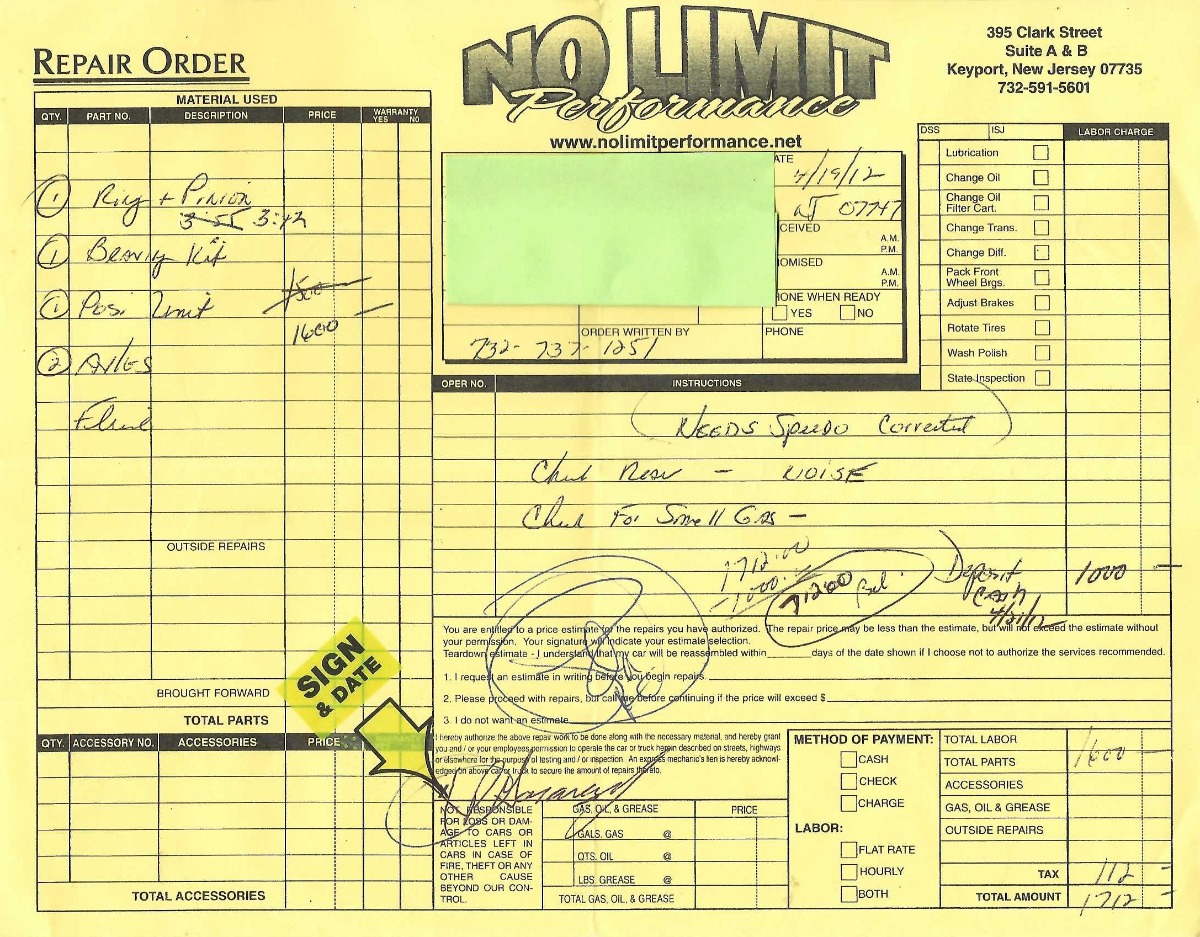 REPAIR ORDER
NO LIMIT
Performance
www.nolimitperformance.net
395 Clark Street
Suite A & B
Keyport, New Jersey 07735
732-591-5601
MATERIAL USED
QTY. PART NO. DESCRIPTION PRICE WARRANTY YES NO
1 Ring + Pinion
3:55 3:42
1 Bearing Kit
1 Posi Unit 1500
1600 —
2 Axles
Fluid
OUTSIDE REPAIRS
BROUGHT FORWARD
TOTAL PARTS
QTY. ACCESSORY NO. ACCESSORIES PRICE
TOTAL ACCESSORIES
ATE 4/19/12
NJ 07747
CEIVED A.M. P.M.
OMISED A.M. P.M.
HONE WHEN READY
YES NO
ORDER WRITTEN BY PHONE
732-737-1251
DSS ISJ LABOR CHARGE
Lubrication
Change Oil
Change Oil
Filter Cart.
Change Trans.
Change Diff.
Pack Front
Wheel Brgs.
Adjust Brakes
Rotate Tires
Wash Polish
State Inspection
OPER NO. INSTRUCTIONS
NEEDS Speedo Corrected
Check Rear - NOISE
Check For Smell Gas -
1712.00
-1000.
712.00 Bal.
Deposit 1000 —
Cash
You are entitled to a price estimate for the repairs you have authorized. The repair price may be less than the estimate, but will not exceed the estimate without
your permission. Your signature will indicate your estimate selection.
Teardown estimate - I understand that my car will be reassembled within______ days of the date shown if I choose not to authorize the services recommended.
1. I request an estimate in writing before you begin repairs.
2. Please proceed with repairs, but call me before continuing if the price will exceed $
3. I do not want an estimate
SIGN
& DATE
I hereby authorize the above repair work to be done along with the necessary material, and hereby grant
you and / or your employees permission to operate the car or truck herein described on streets, highways
or elsewhere for the purpose of testing and / or inspection. An express mechanic's lien is hereby acknowl-
edged on above car or truck to secure the amount of repairs thereto.
X
NOT RESPONSIBLE
FOR LOSS OR DAM-
AGE TO CARS OR
ARTICLES LEFT IN
CARS IN CASE OF
FIRE, THEFT OR ANY
OTHER CAUSE
BEYOND OUR CON-
TROL.
GAS, OIL, & GREASE PRICE
GALS. GAS @
QTS. OIL @
LBS. GREASE @
TOTAL GAS, OIL, & GREASE
METHOD OF PAYMENT:
CASH
CHECK
CHARGE
LABOR:
FLAT RATE
HOURLY
BOTH
TOTAL LABOR
TOTAL PARTS 1600 —
ACCESSORIES
GAS, OIL & GREASE
OUTSIDE REPAIRS
TAX 112 —
TOTAL AMOUNT 1712 —